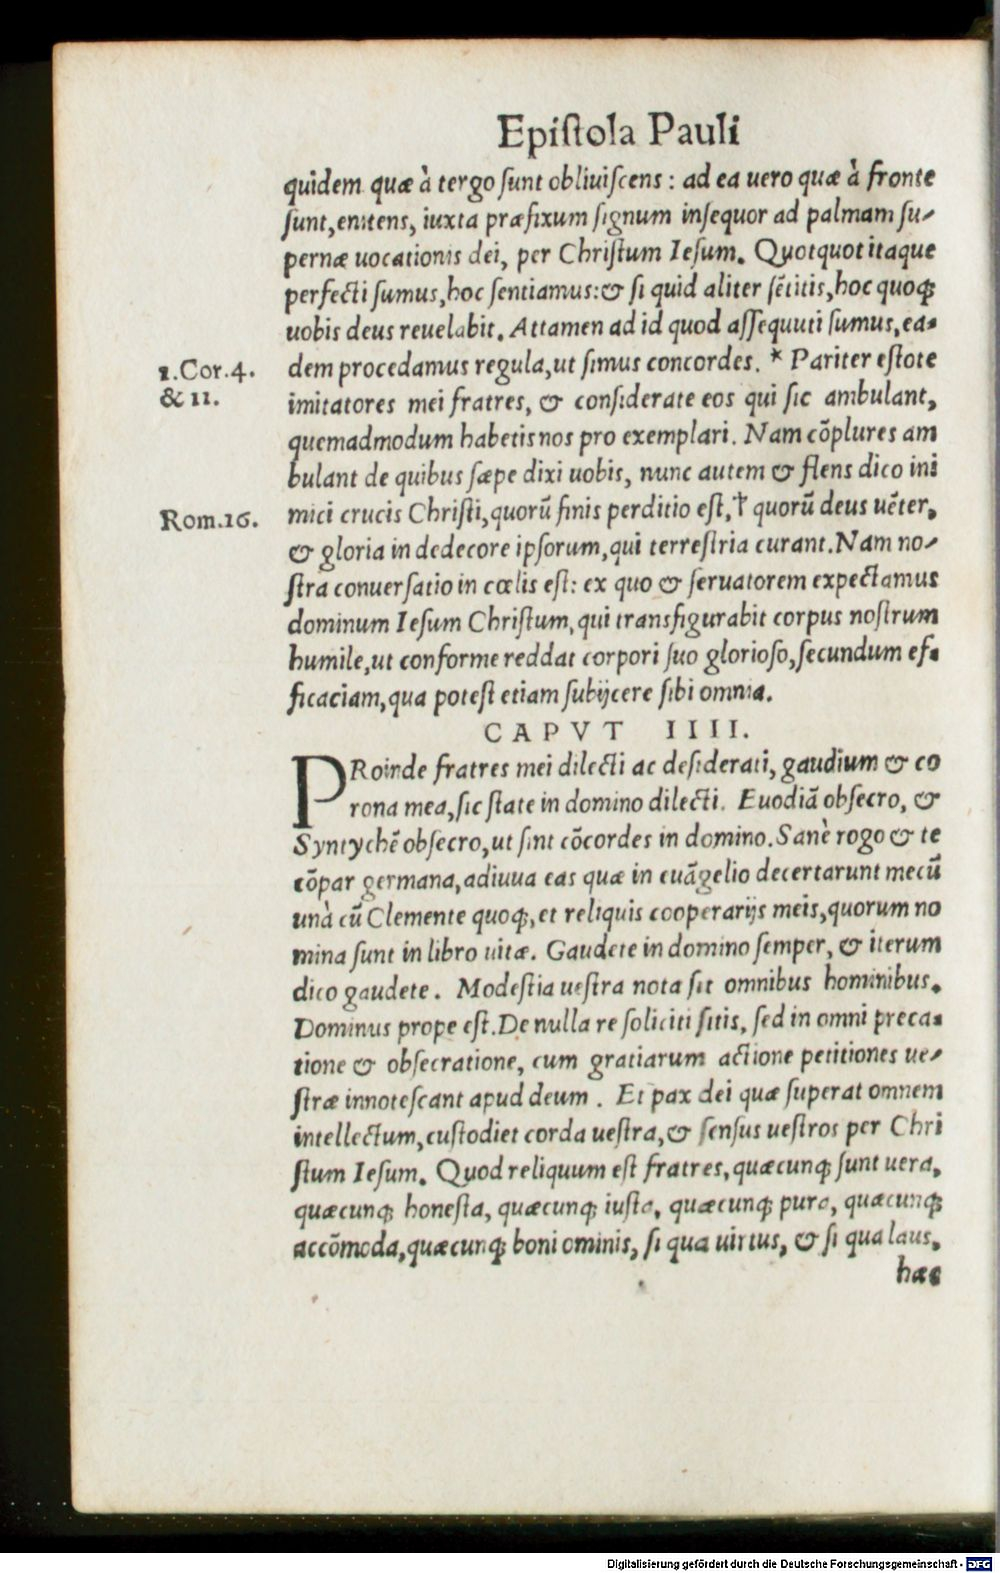 Epiſtola Pauli
quidem quæ à tergo ſunt obliuiſcens : ad ea uero quæ à fronte
ſunt, enitens, iuxta præfixum ſignum inſequor ad palmam ſu-
pernæ uocationis dei, per Chriſtum Ieſum. Quotquot itaque
perfecti ſumus, hoc ſentiamus: & ſi quid aliter ſẽtitis, hoc quoq;
uobis deus reuelabit. Attamen ad id quod aſſequuti ſumus, ea-
1.Cor.4. dem procedamus regula, ut ſimus concordes. * Pariter eſtote
& 11. imitatores mei fratres, & conſiderate eos qui ſic ambulant,
quemadmodum habetis nos pro exemplari. Nam cõplures am
bulant de quibus ſæpe dixi uobis, nunc autem & flens dico ini
Rom.16. mici crucis Chriſti, quorũ finis perditio eſt, † quorũ deus uẽter,
& gloria in dedecore ipſorum, qui terreſtria curant. Nam no-
ſtra conuerſatio in cœlis eſt: ex quo & ſeruatorem expectamus
dominum Ieſum Chriſtum, qui transfigurabit corpus noſtrum
humile, ut conforme reddat corpori ſuo glorioſo, ſecundum ef-
ficaciam, qua poteſt etiam ſubijcere ſibi omnia.
CAPVT IIII.
PRoinde fratres mei dilecti ac deſiderati, gaudium & co
rona mea, ſic ſtate in domino dilecti. Euodiã obſecro, &
Syntychẽ obſecro, ut ſint cõcordes in domino. Sanè rogo & te
cõpar germana, adiuua eas quæ in euãgelio decertarunt mecũ
unà cũ Clemente quoq;, et reliquis cooperarijs meis, quorum no
mina ſunt in libro uitæ. Gaudete in domino ſemper, & iterum
dico gaudete. Modeſtia ueſtra nota ſit omnibus hominibus.
Dominus prope eſt. De nulla re ſoliciti ſitis, ſed in omni preca-
tione & obſecratione, cum gratiarum actione petitiones ue-
ſtræ innoteſcant apud deum . Et pax dei quæ ſuperat omnem
intellectum, cuſtodiet corda ueſtra, & ſenſus ueſtros per Chri
ſtum Ieſum. Quod reliquum eſt fratres, quæcunq; ſunt uera,
quæcunq; honeſta, quæcunq; iuſta, quæcunq; pura, quæcunq;
accõmoda, quæcunq; boni ominis, ſi qua uirtus, & ſi qua laus,
hæc
Digitalisierung gefördert durch die Deutsche Forschungsgemeinschaft - DFG